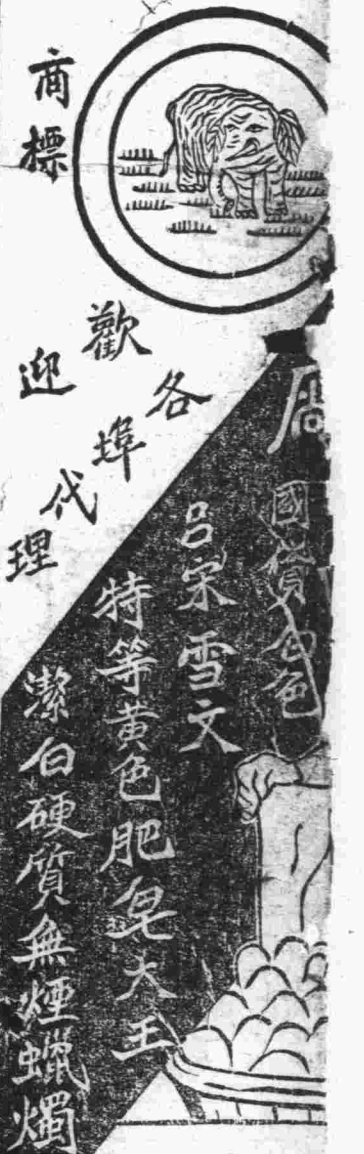 商標
歡迎
各埠
代理
國貨
色
呂宋雪文
特等黃色肥皂大王
潔白硬質無煙蠟燭